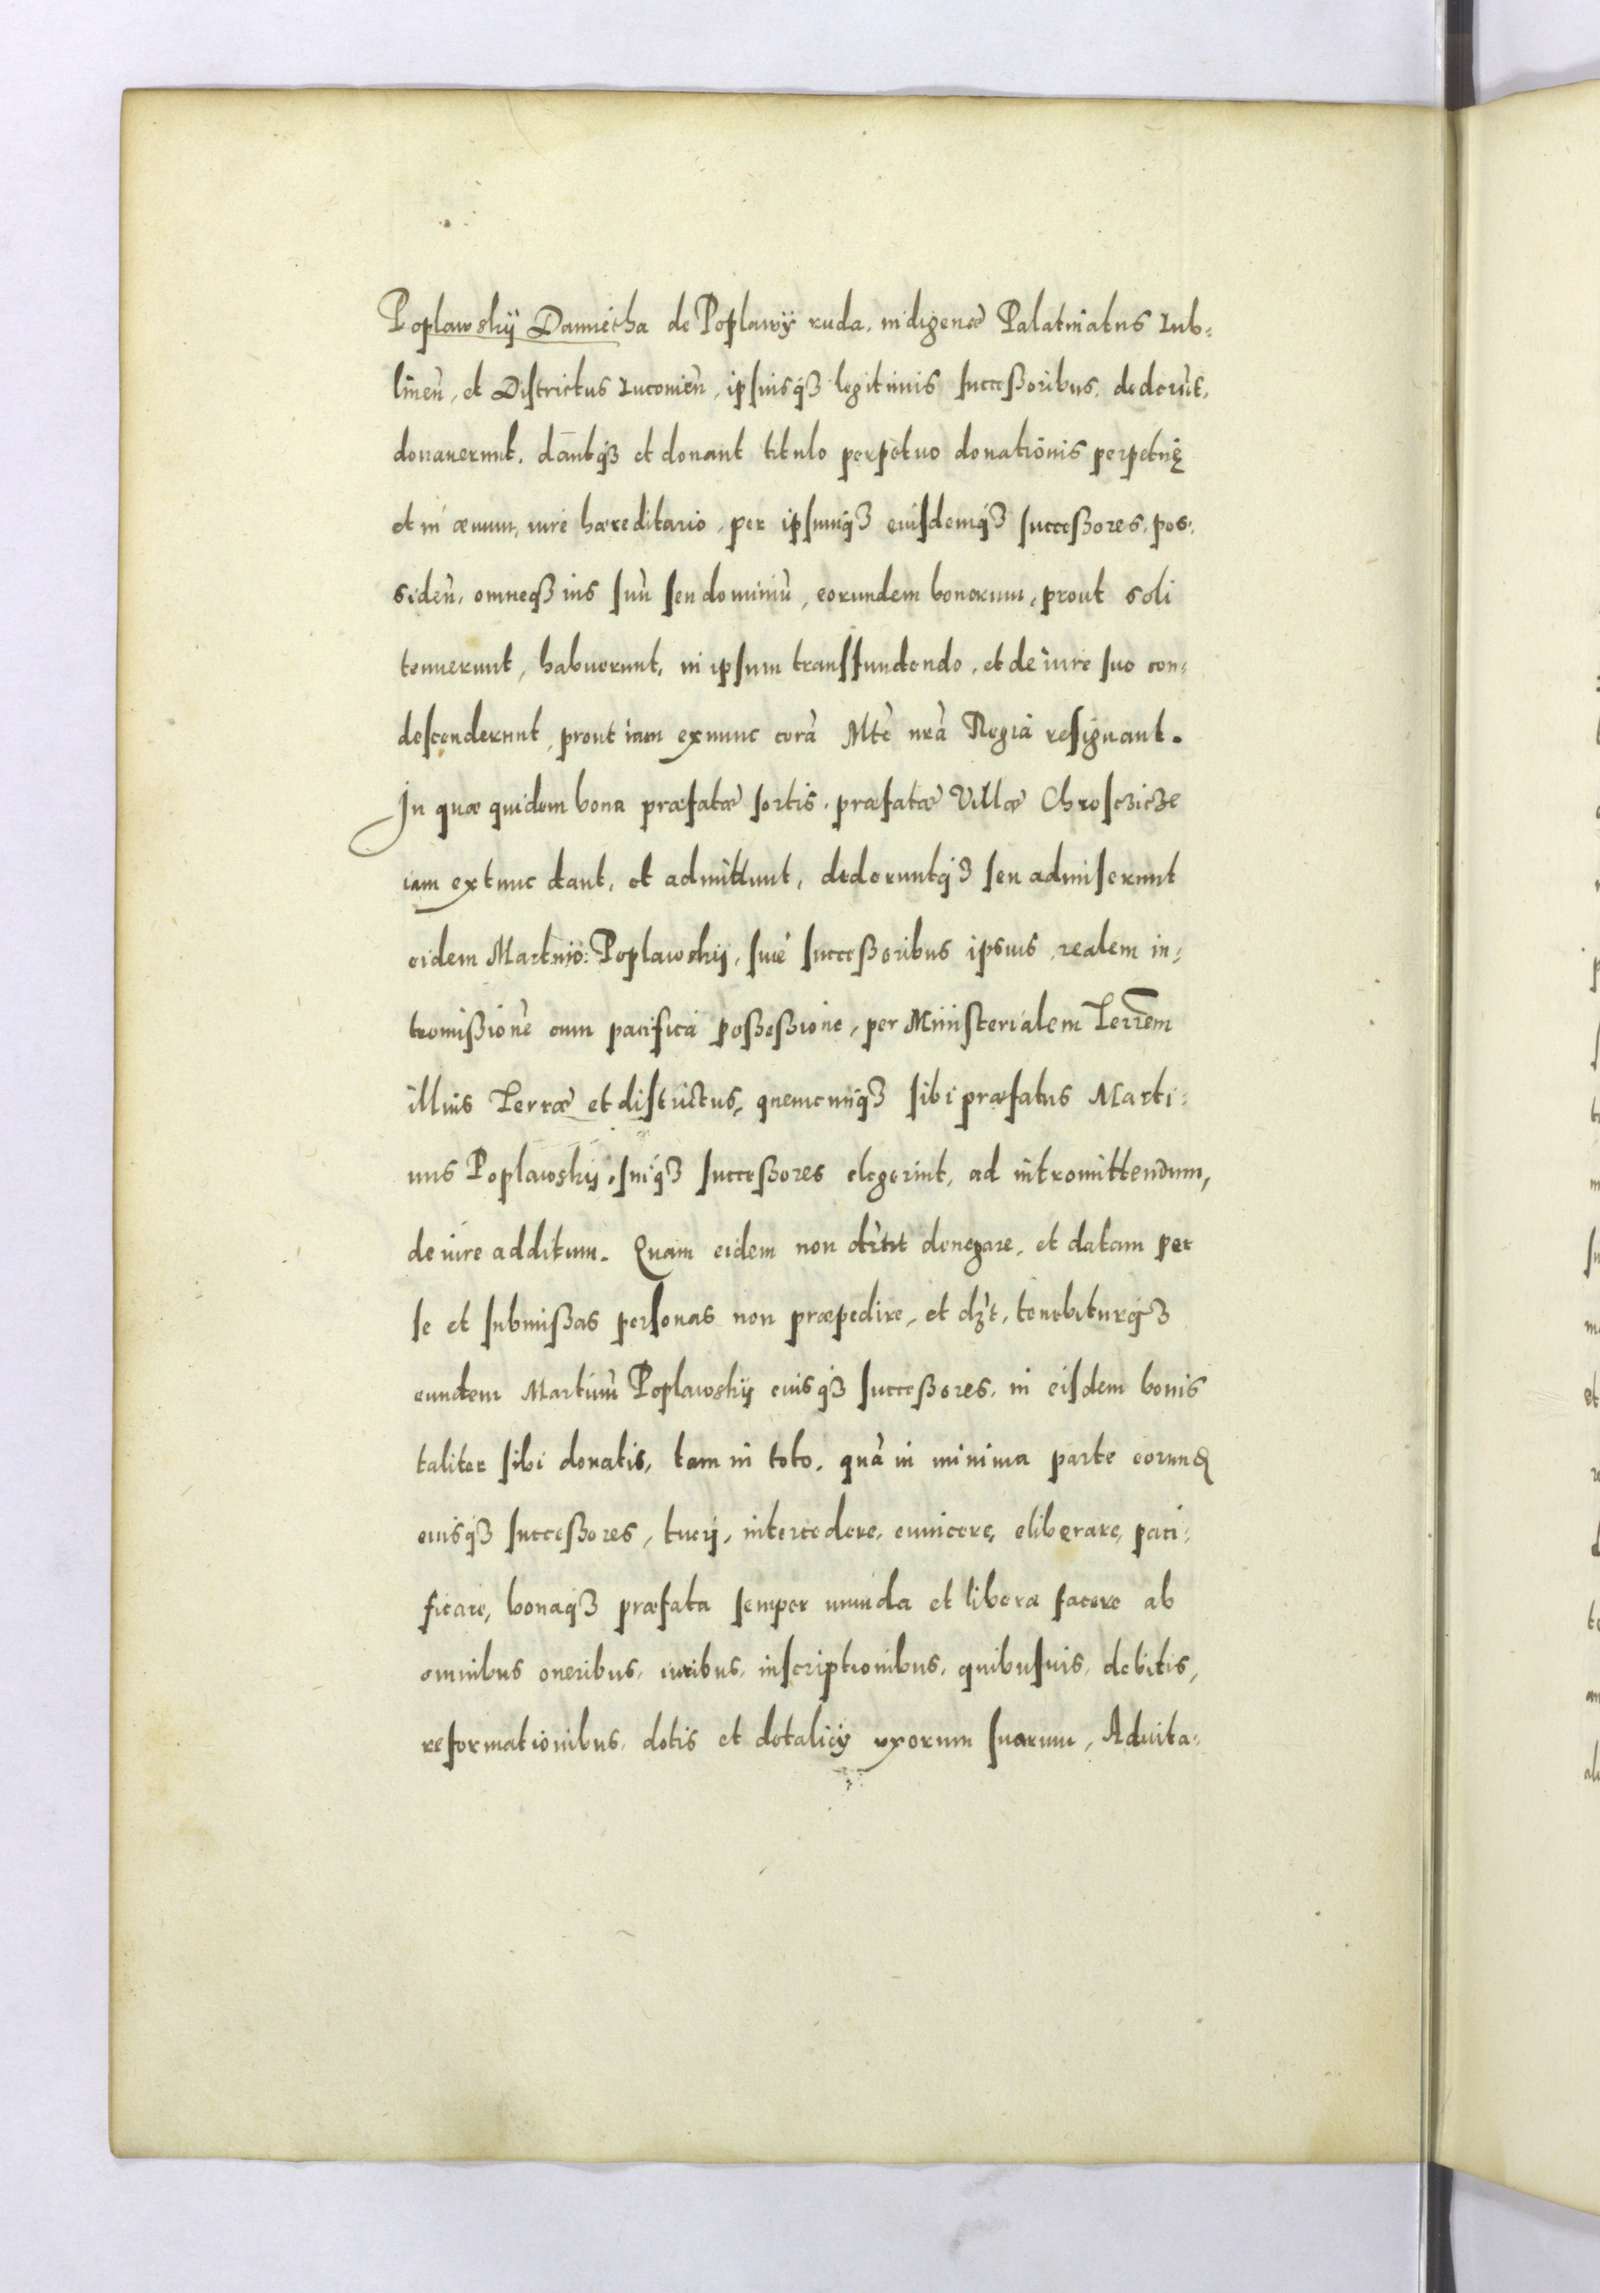 Poplawskij Dannetha de Poplawÿ ruda, indigenæ Palatinatus Lub=
linen̄, et Districtus Lucomen̄, ipsiusq3 legitimis successoribus, dederūt,
donauerunt, dantq3 et donant titulo perpetuo donationis perpetuę
et in æuum, iure hæreditario, per ipsumq3 eiusdemq3 successores, pos=
siden̄, omneq3 ius suū seu dominiū, eorundem bonorum, prout soli
tenuerunt, habuerunt, in ipsum transfundendo, et de iure suo con=
descenderunt, prout iam exnunc corā Mte nrā Regia resignant.
In quæ quidem bona præfatæ sortis, præfatæ Villæ Chrosczicze
iam extunc dant, et admittunt, dederuntq3 seu admiserunt
eidem Martino: Poplawskij, siue successoribus ipsius, realem in=
tromissionē cum pacifica possessione, per Ministerialem Terrēm
illius Terræ et districtus, quemcunq3 sibi præfatus Marti=
nus Poplawskij, suiq3 successores elegerint, ad intromittendum,
de iure additum. Quam eidem non dēnt denegare, et datam per
se et submissas personas non præpedire, et dēt, tenebiturq3
eundem Martinū Poplawskij eiusq3 successores, in eisdem bonis
taliter sibi donatis, tam in toto, quā in minima parte eorund
eiusq3 successores, tuerj, intercedere, euincere, eliberare, paci=
ficare, bonaq3 præfata semper munda et libera facere ab
omnibus oneribus, iuribus, inscriptionibus, quibusuis, debitis,
reformationibus, dotis et dotalicij uxorum suarum, Aduita=